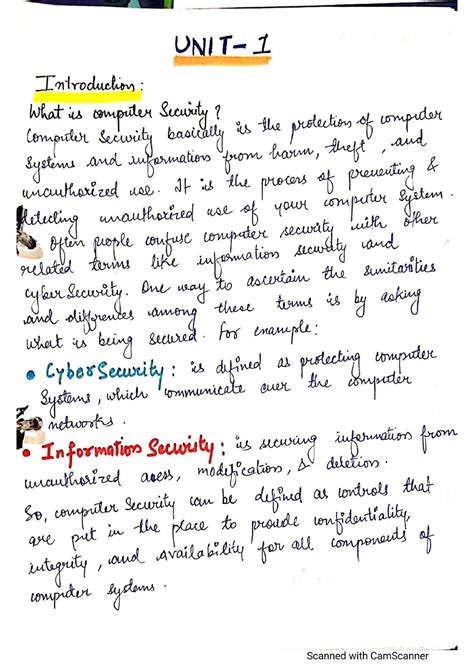 UNIT-1
Introduction:
What is computer Security?
Computer Security basically is the protection of computer
Systems and information from harm, theft, and
unauthorized use. It is the process of preventing &
detecting unauthorized use of your computer System.
Often people confuse computer security with other
related terms like information security and
cyberSecurity. One way to ascertain the similarities
and differences among these terms is by asking
what is being secured. For example:
• CyberSecurity: is defined as protecting computer
Systems, which communicate over the computer
networks.
• Information Security: is securing information from
unauthorized acess, modification, & deletion.
So, computer Security can be defined as controls that
are put in the place to provide confidentiality,
integrity, and availability for all components of
computer systems.
Scanned with CamScanner